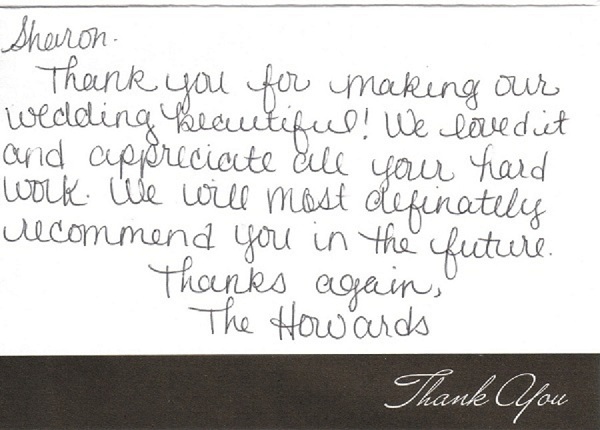 Sharon.
Thank you for making our
wedding beautiful! We loved it
and appreciate all your hard
work. We will most definately
recommend you in the future.
Thanks again,
The Howards
Thank You